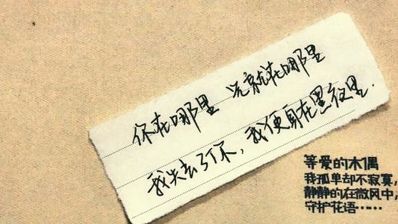 你在哪里 光就在哪里
我失去了你，我便身在黑夜里.
等爱的木偶
我孤单却不寂寞，
静静的在微风中，
守护花语……